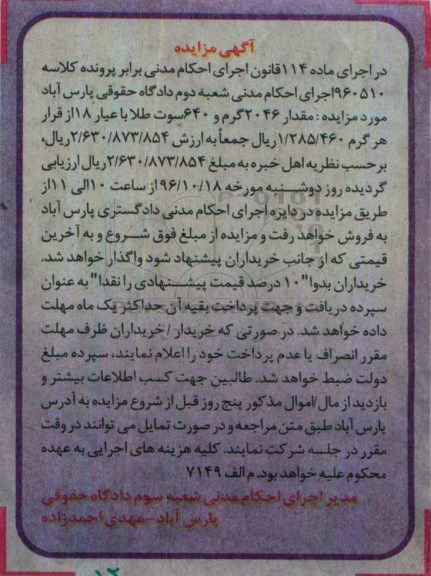 آگهی مزایده
در اجرای ماده ۱۱۴قانون اجرای احکام مدنی برابر پرونده کلاسه
۹۶۰۵۱۰اجرای احکام مدنی شعبه دوم دادگاه حقوقی پارس آباد
مورد مزایده : مقدار ۲۰۴۶گرم و ۶۴۰سوت طلا با عیار ۱۸از قرار
هر گرم ۱/۲۸۵/۴۶۰ریال جمعاً به ارزش ۲/۶۳۰/۸۷۳/۸۵۴ریال،
بر حسب نظریه اهل خبره به مبلغ ۲/۶۳۰/۸۷۳/۸۵۴ریال ارزیابی
گردیده روز دوشنبه مورخه ۹۶/۱۰/۱۸ از ساعت ۱۰الی ۱۱از
طریق مزایده در دایره اجرای احکام مدنی دادگستری پارس آباد
به فروش خواهد رفت و مزایده از مبلغ فوق شروع و به آخرین
قیمتی که از جانب خریداران پیشنهاد شود واگذار خواهد شد.
خریداران بدوا" ۱۰ درصد قیمت پیشنهادی را نقدا" به عنوان
سپرده دریافت و جهت پرداخت بقیه آن حداکثر یک ماه مهلت
داده خواهد شد. در صورتی که خریدار /خریداران ظرف مهلت
مقرر انصراف یا عدم پرداخت خود را اعلام نمایند، سپرده مبلغ
دولت ضبط خواهد شد. طالبین جهت کسب اطلاعات بیشتر و
بازدید از مال/اموال مذکور پنج روز قبل از شروع مزایده به آدرس
پارس آباد طبق متن مراجعه و در صورت تمایل می توانند در وقت
مقرر در جلسه شرکت نمایند. کلیه هزینه های اجرایی به عهده
محکوم علیه خواهد بود. م الف ۷۱۴۹
مدیر اجرای احکام مدنی شعبه سوم دادگاه حقوقی
پارس آباد – مهدی احمدزاده